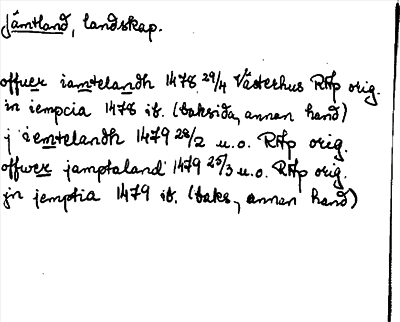 Jämtland, landskap.
offuer iamtelandh 1478 29/4 Västerhus RAp orig.
in iempcia 1478 ib. (baksida, annan hand)
j iemtelandh 1479 28/2 u.o. RAp orig.
offwer jamptaland 1479 25/3 u.o. RAp orig.
jn jemptia 1479 ib. (baks., annan hand)